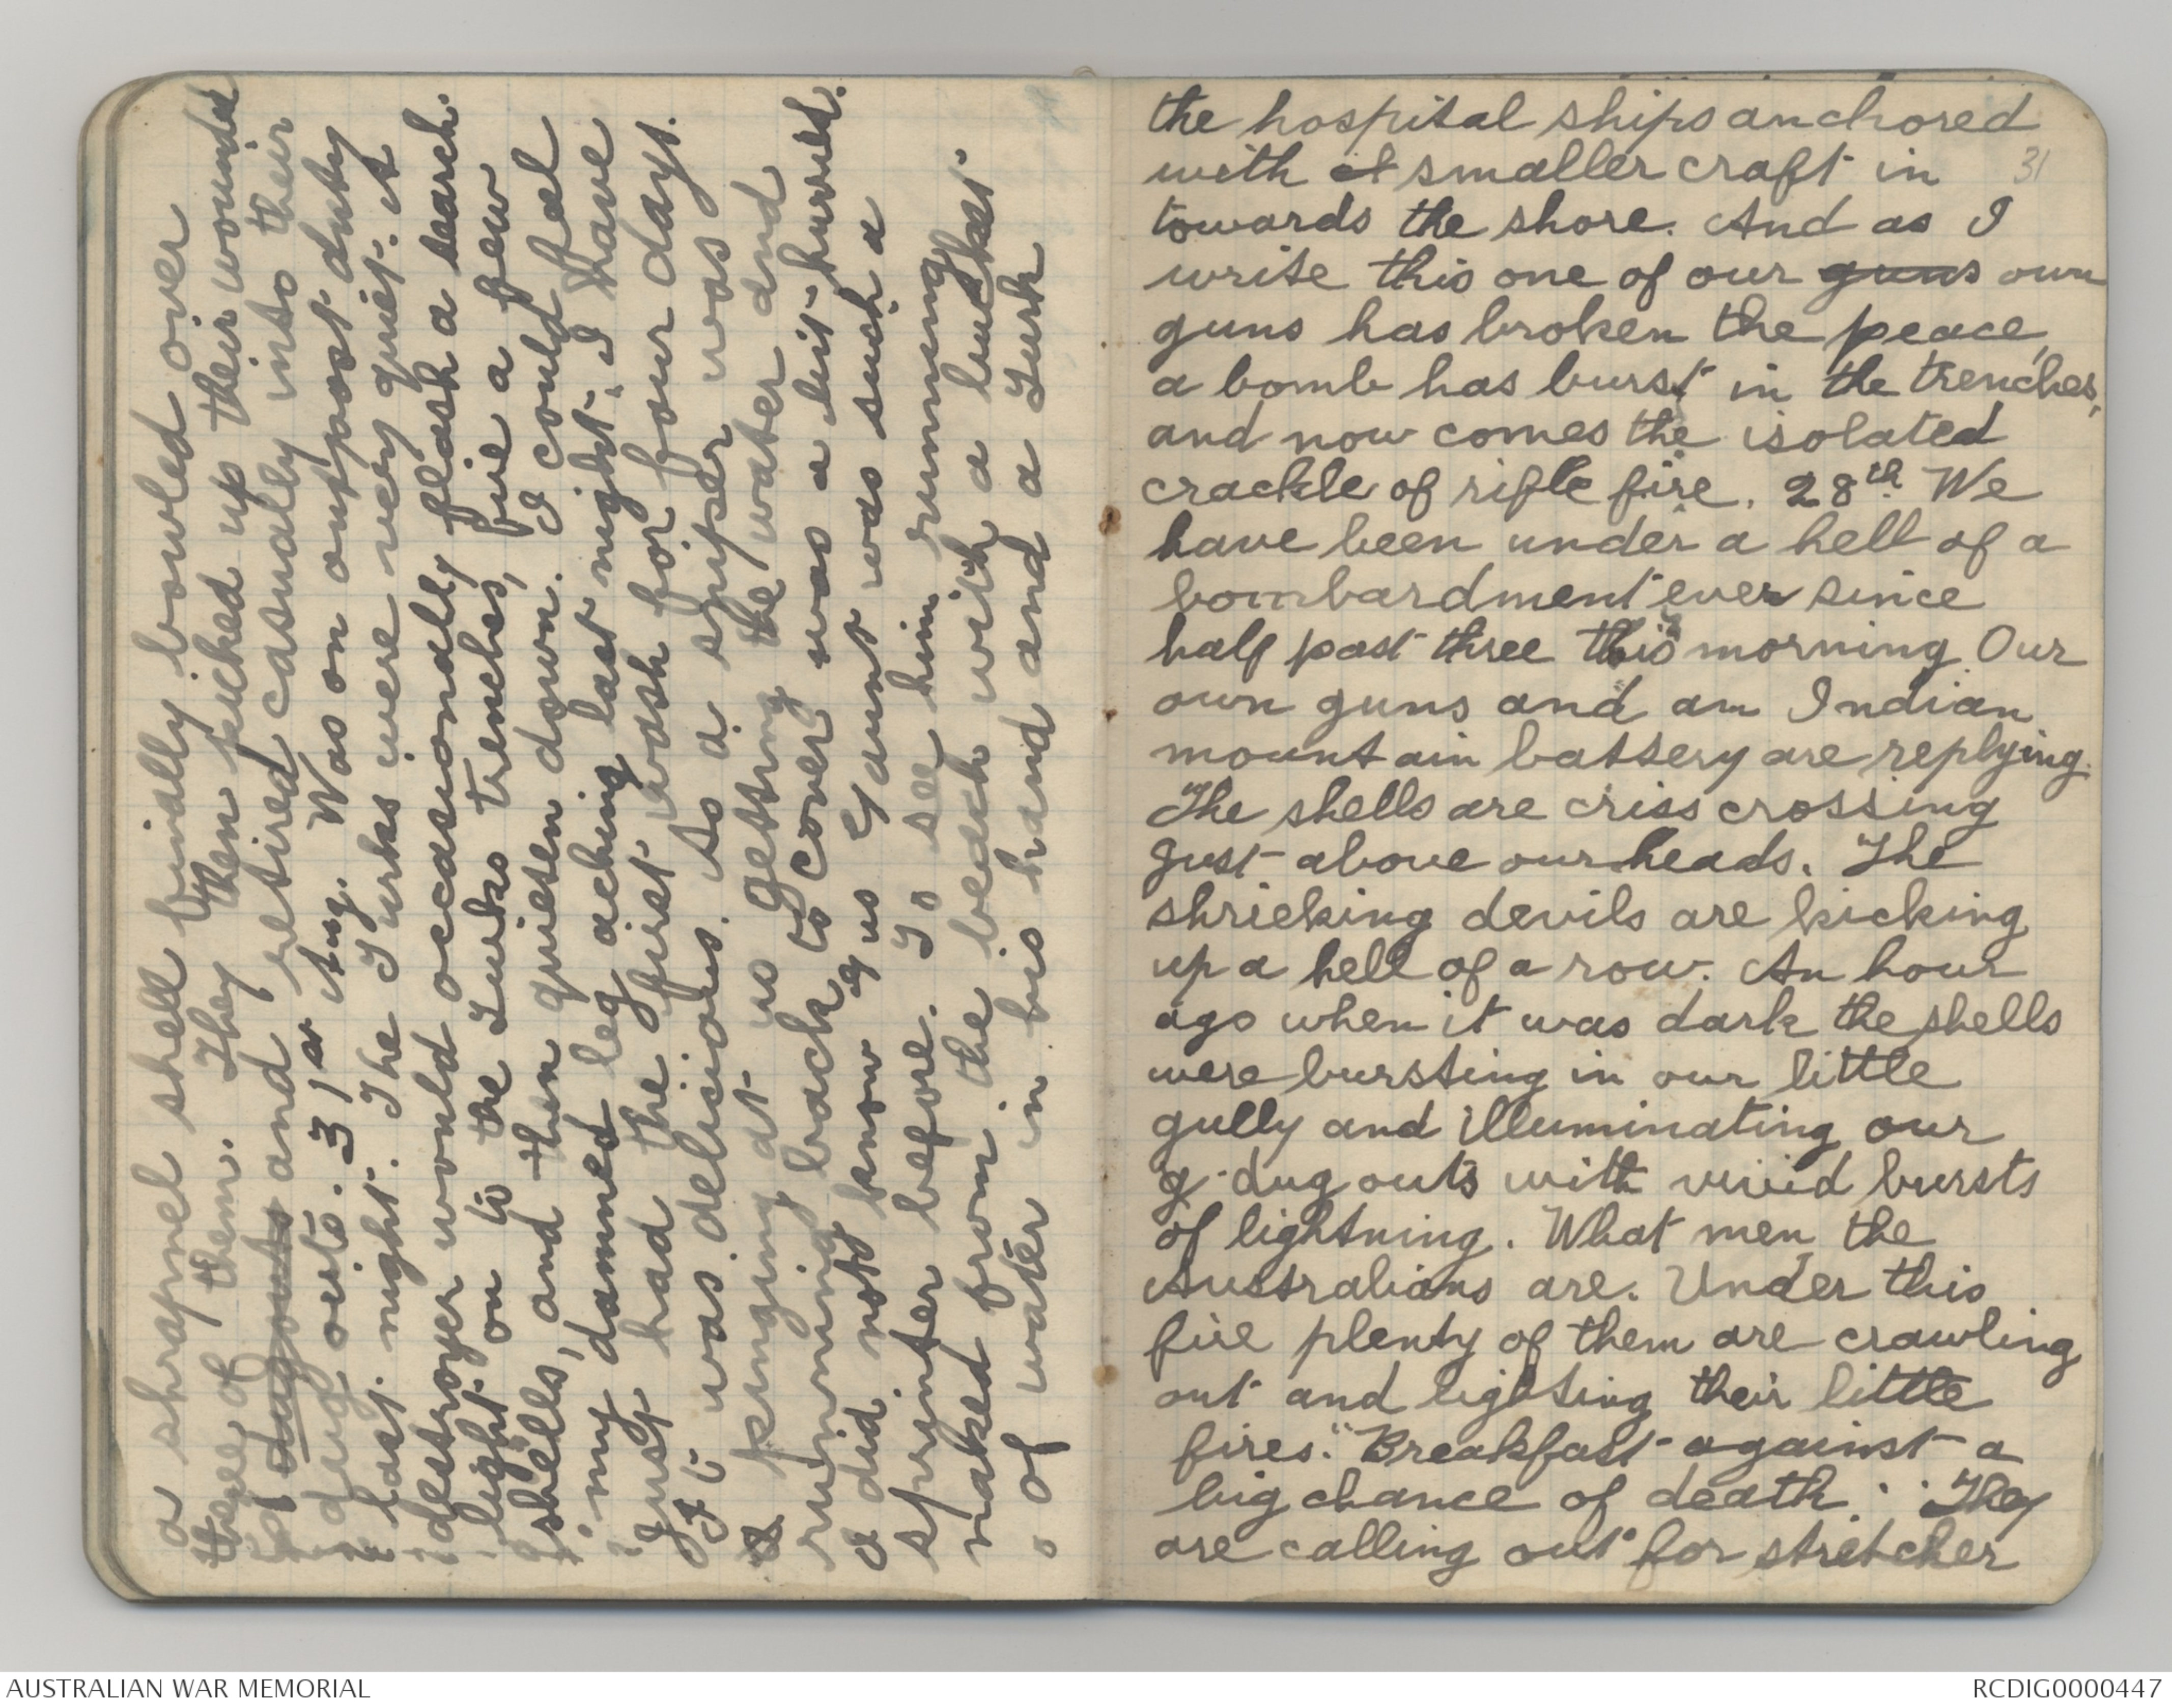 a shrapnel shell finally bowled over
three of them. They then picked up their wounded
& dugouts and retired casually into their
dug outs. 31st Aug. Was on outpost duty
last night. The Turks were very quiet. A
destroyer would occasionally flash a search
light on to the Turks trenches, fire a few
shells, and then quieten down. I could feel
my damned leg aching last night. I have
just had the first wash for four days.
It was delicious. To a sniper was
pinging at us getting the water and
running back to cover was a bit hurried.
I did not know Gaunt was such a
sprinter before. To see him running
naked from the beach with a bucket
of water in his hand and a Turk
the hospital ships anchored
with at smaller craft in 31
towards the shore. And as I
write this one of our guns own
guns has broken the peace,
a bomb has burst in the trenches,
and now comes the isolated
crackle of rifle fire. 28th We
have been under a hell of a
bombardment ever since
half past three this morning. Our
own guns and an Indian
mountain battery are replying.
The shells are criss crossing
just above our heads. The
shrieking devils are kicking
up a hell of a row. An hour
ago when it was dark the shells
were bursting in our little
gully and illuminating our
g dug outs with vivid bursts
of lightning. What men the
Australians are. Under this
fire plenty of them are crawling
out and lighting their little
fires. "Breakfast against a
big chance of death." They
are calling out for stretcher
AUSTRALIAN WAR MEMORIAL
RCDIG0000447